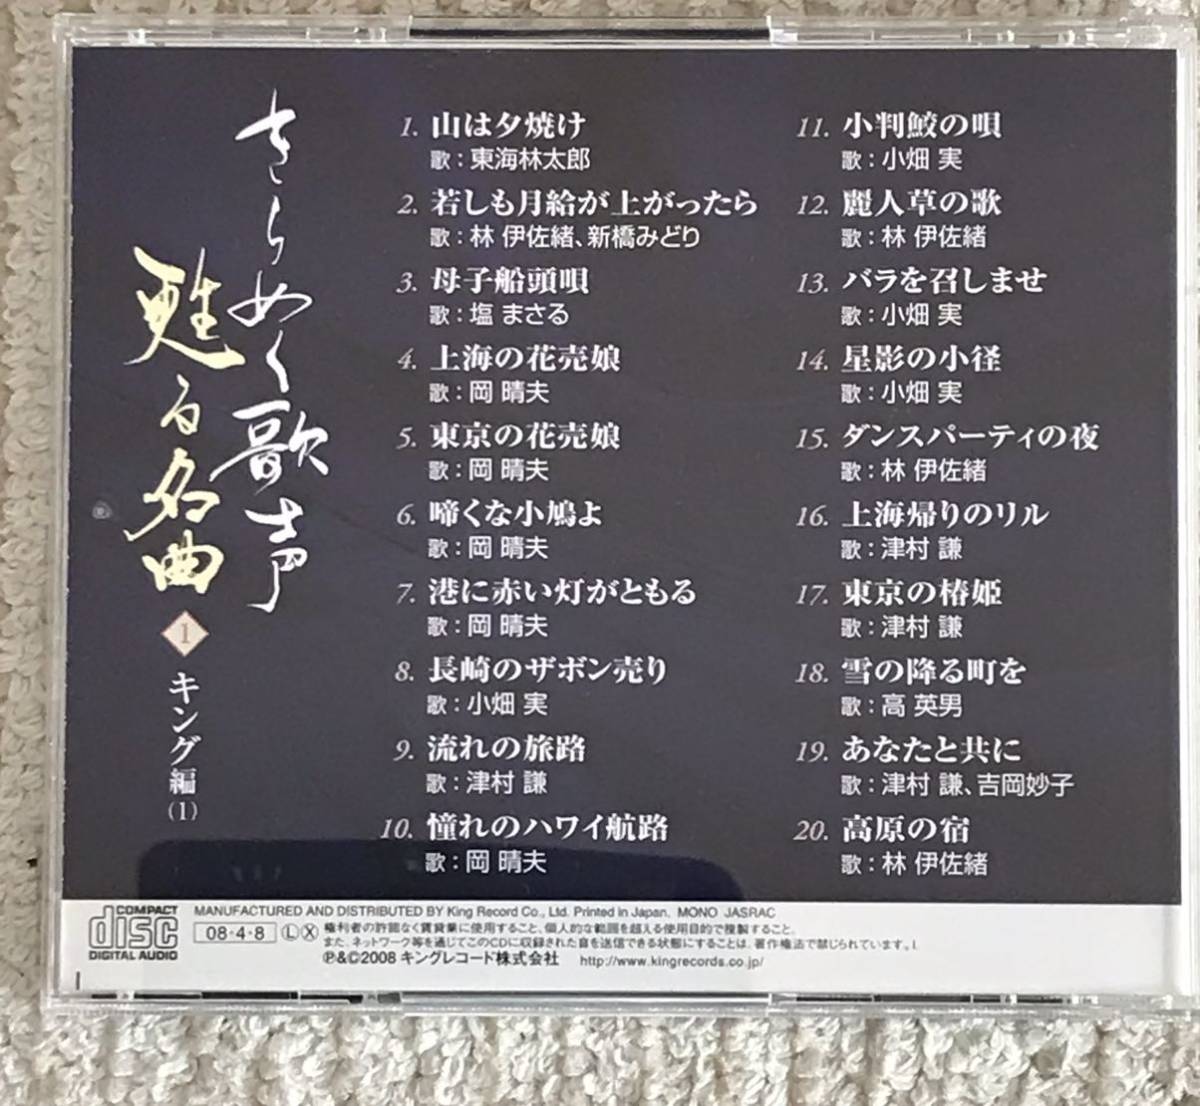 きらめく歌声
甦る名曲
1
キング編
(1)
1. 山は夕焼け
歌：東海林太郎
2. 若しも月給が上がったら
歌：林 伊佐緒、新橋みどり
3. 母子船頭唄
歌：塩 まさる
4. 上海の花売娘
歌：岡 晴夫
5. 東京の花売娘
歌：岡 晴夫
6. 啼くな小鳩よ
歌：岡 晴夫
7. 港に赤い灯がともる
歌：岡 晴夫
8. 長崎のザボン売り
歌：小畑 実
9. 流れの旅路
歌：津村 謙
10. 憧れのハワイ航路
歌：岡 晴夫
11. 小判鮫の唄
歌：小畑 実
12. 麗人草の歌
歌：林 伊佐緒
13. バラを召しませ
歌：小畑 実
14. 星影の小径
歌：小畑 実
15. ダンスパーティの夜
歌：林 伊佐緒
16. 上海帰りのリル
歌：津村 謙
17. 東京の椿姫
歌：津村 謙
18. 雪の降る町を
歌：高 英男
19. あなたと共に
歌：津村 謙、吉岡妙子
20. 高原の宿
歌：林 伊佐緒
COMPACT
disc
DIGITAL AUDIO
MANUFACTURED AND DISTRIBUTED BY King Record Co., Ltd. Printed in Japan. MONO JASRAC
08・4・8 Ⓛ Ⓧ 権利者の許諾なく賃貸業に使用すること、個人的な範囲を超える使用目的で複製すること、
また、ネットワーク等を通じてこのCDに収録された音を送信できる状態にすることは、著作権法で禁じられています。I.
Ⓟ&©2008 キングレコード株式会社 http://www.kingrecords.co.jp/